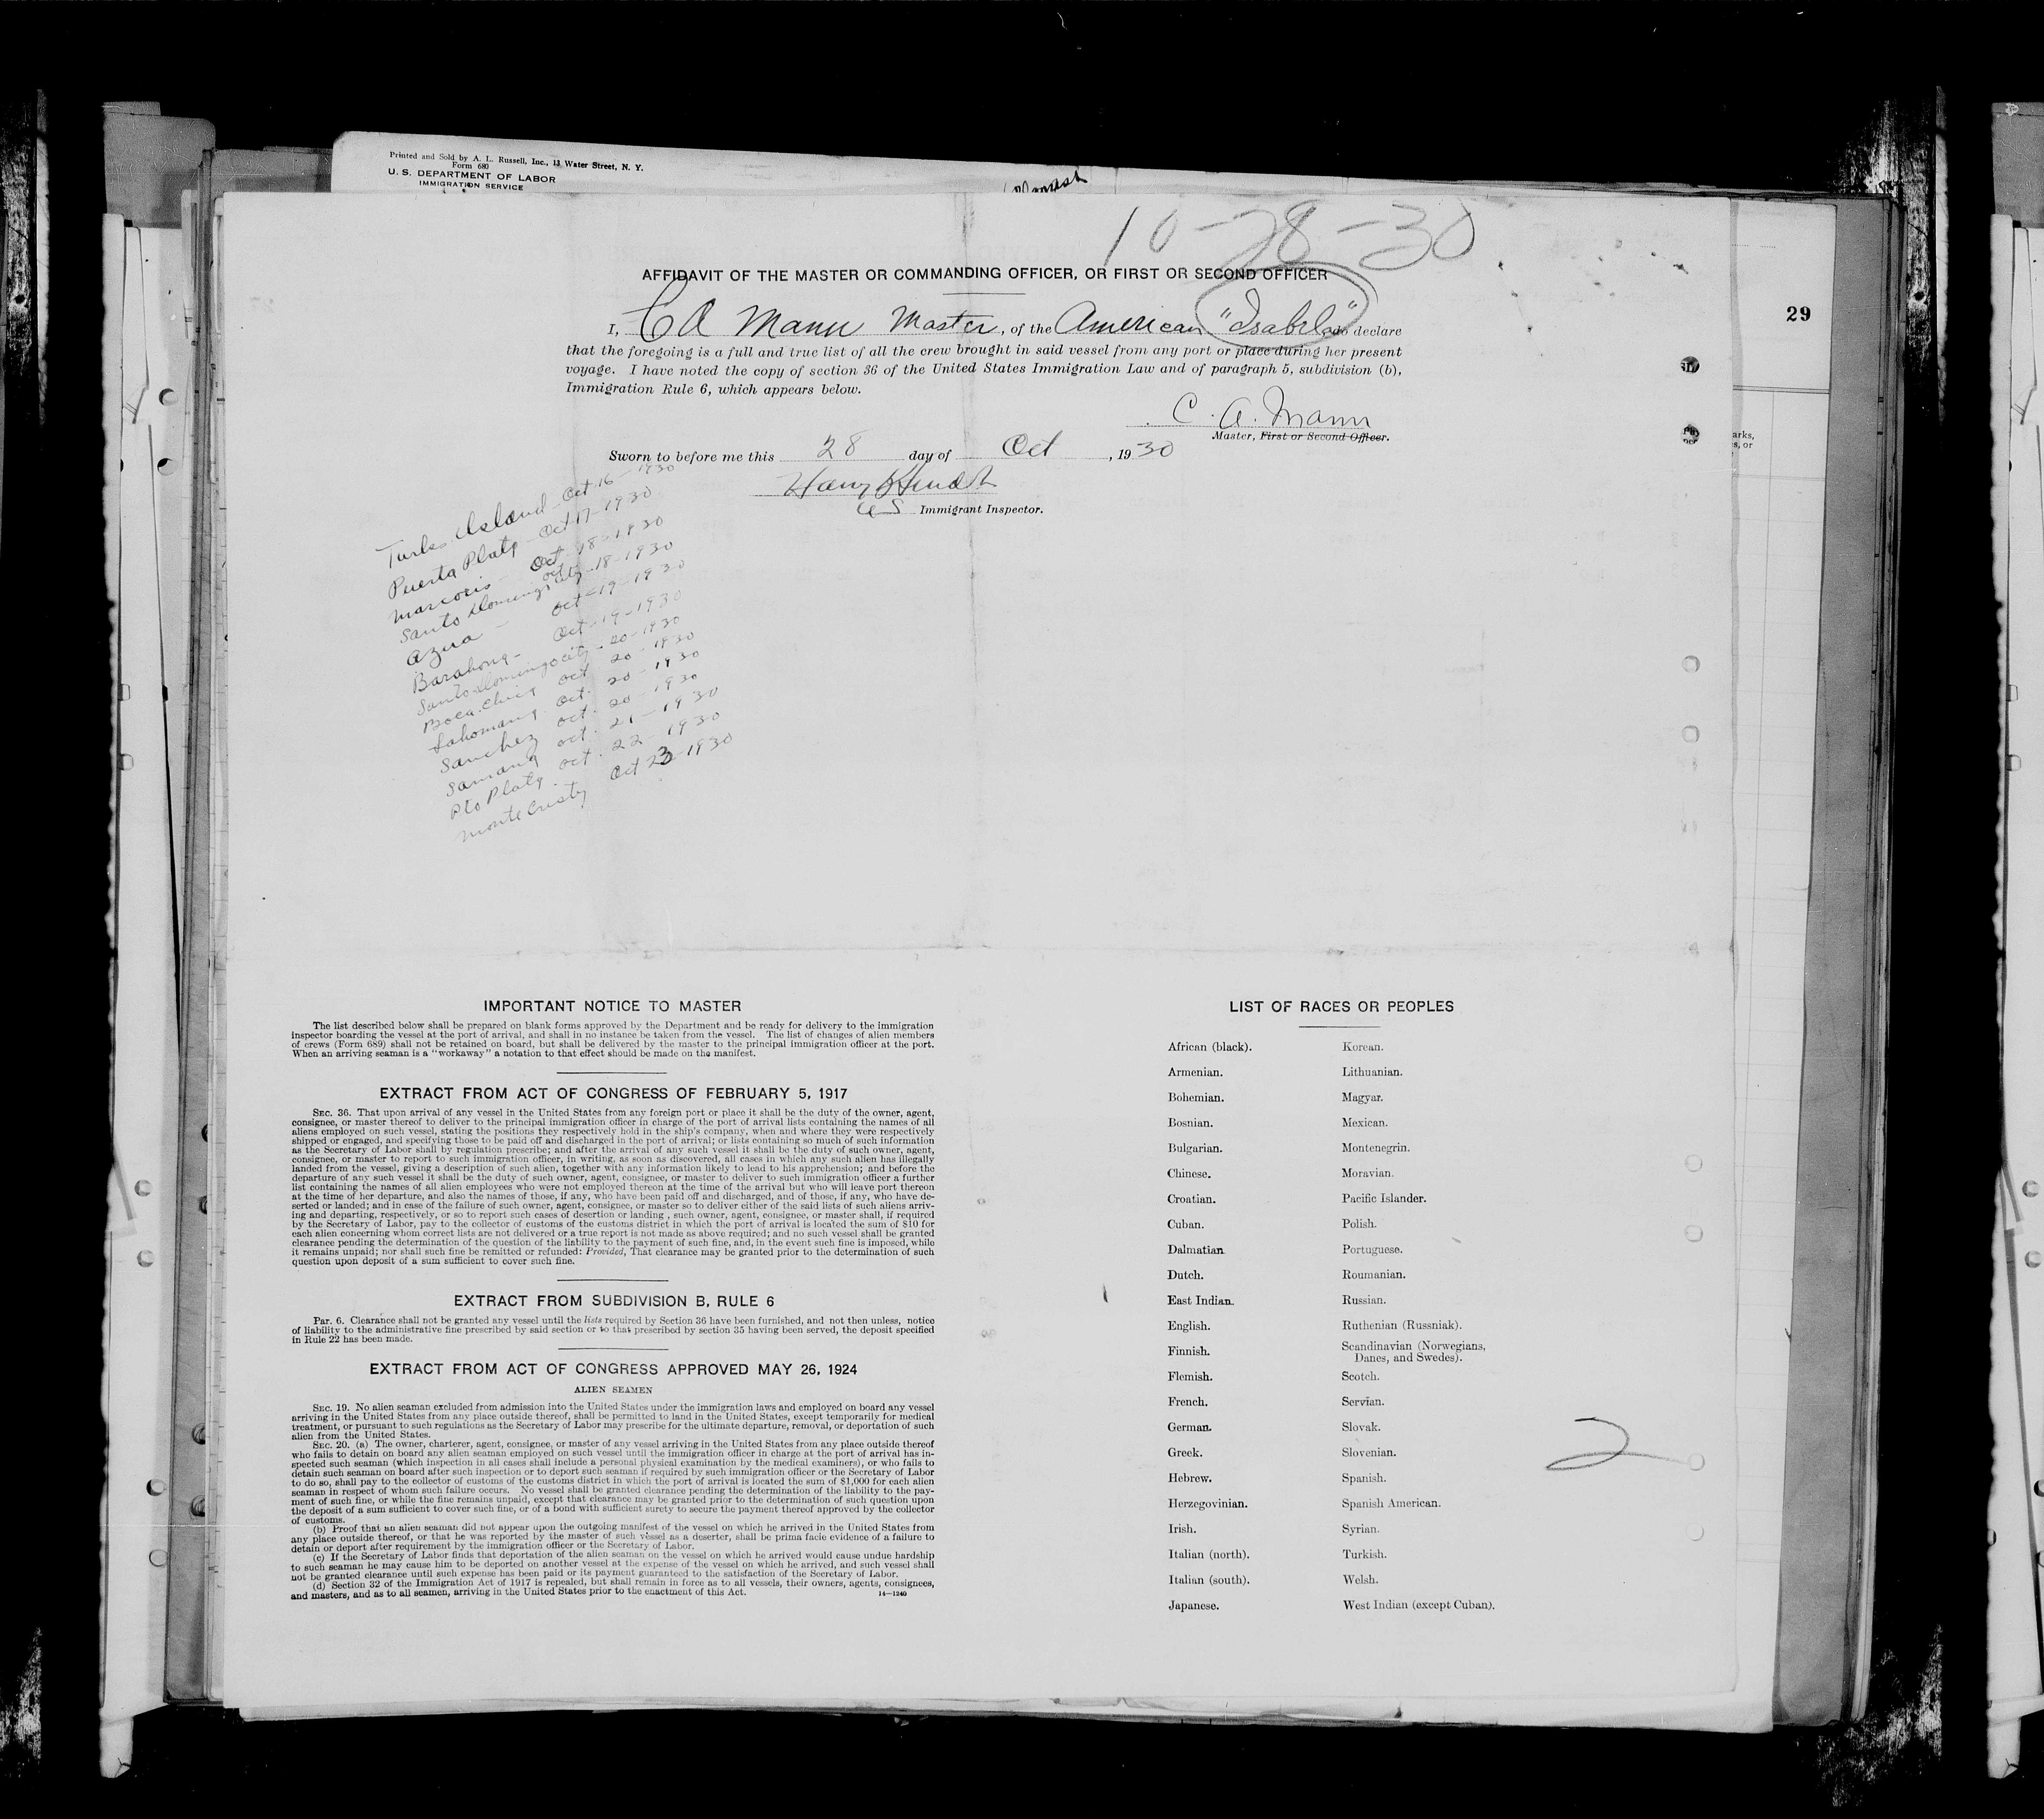 Printed and Sold by A. L. Russell, Inc., 13 Water Street, N. Y.
Form 680
U. S. DEPARTMENT OF LABOR
IMMIGRATION SERVICE
10-28-30
29
AFFIDAVIT OF THE MASTER OR COMMANDING OFFICER, OR FIRST OR SECOND OFFICER
I, C A Mann Master, of the American "Isabela", do declare
that the foregoing is a full and true list of all the crew brought in said vessel from any port or place during her present
voyage. I have noted the copy of section 36 of the United States Immigration Law and of paragraph 5, subdivision (b),
Immigration Rule 6, which appears below.
C. A. Mann
Master, First or Second Officer.
Sworn to before me this 28 day of Oct, 1930
Harry
US Immigrant Inspector.
Turks Island - Oct 16 - 1930
Puerta Plata - Oct 17 - 1930
Marcoris - Oct 18 - 1930
Santo Domingo City - Oct 18 - 1930
Azua - Oct - 19 - 1930
Barahona - Oct - 19 - 1930
Santo Domingo City - 20 - 1930
Boca Chica Oct 20 - 1930
Oct. 20 - 1930
Sanchez Oct. 20 - 1930
Samana Oct. 21 - 1930
Pto Plata Oct. 22 - 1930
Monte Cristy Oct 23 - 1930
IMPORTANT NOTICE TO MASTER
The list described below shall be prepared on blank forms approved by the Department and be ready for delivery to the immigration
inspector boarding the vessel at the port of arrival, and shall in no instance be taken from the vessel. The list of changes of alien members
of crews (Form 689) shall not be retained on board, but shall be delivered by the master to the principal immigration officer at the port.
When an arriving seaman is a "workaway" a notation to that effect should be made on the manifest.
EXTRACT FROM ACT OF CONGRESS OF FEBRUARY 5, 1917
SEC. 36. That upon arrival of any vessel in the United States from any foreign port or place it shall be the duty of the owner, agent,
consignee, or master thereof to deliver to the principal immigration officer in charge of the port of arrival lists containing the names of all
aliens employed on such vessel, stating the positions they respectively hold in the ship's company, when and where they were respectively
shipped or engaged, and specifying those to be paid off and discharged in the port of arrival; or lists containing so much of such information
as the Secretary of Labor shall by regulation prescribe; and after the arrival of any such vessel it shall be the duty of such owner, agent,
consignee, or master to report to such immigration officer, in writing, as soon as discovered, all cases in which any such alien has illegally
landed from the vessel, giving a description of such alien, together with any information likely to lead to his apprehension; and before the
departure of any such vessel it shall be the duty of such owner, agent, consignee, or master to deliver to such immigration officer a further
list containing the names of all alien employees who were not employed thereon at the time of the arrival but who will leave port thereon
at the time of her departure, and also the names of those, if any, who have been paid off and discharged, and of those, if any, who have de-
serted or landed; and in case of the failure of such owner, agent, consignee, or master so to deliver either of the said lists of such aliens arriv-
ing and departing, respectively, or so to report such cases of desertion or landing, such owner, agent, consignee, or master shall, if required
by the Secretary of Labor, pay to the collector of customs of the customs district in which the port of arrival is located the sum of $10 for
each alien concerning whom correct lists are not delivered or a true report is not made as above required; and no such vessel shall be granted
clearance pending the determination of the question of the liability to the payment of such fine, and, in the event such fine is imposed, while
it remains unpaid; nor shall such fine be remitted or refunded: Provided, That clearance may be granted prior to the determination of such
question upon deposit of a sum sufficient to cover such fine.
EXTRACT FROM SUBDIVISION B, RULE 6
Par. 6. Clearance shall not be granted any vessel until the lists required by Section 36 have been furnished, and not then unless, notice
of liability to the administrative fine prescribed by said section or to that prescribed by section 35 having been served, the deposit specified
in Rule 22 has been made.
EXTRACT FROM ACT OF CONGRESS APPROVED MAY 26, 1924
ALIEN SEAMEN
SEC. 19. No alien seaman excluded from admission into the United States under the immigration laws and employed on board any vessel
arriving in the United States from any place outside thereof, shall be permitted to land in the United States, except temporarily for medical
treatment, or pursuant to such regulations as the Secretary of Labor may prescribe for the ultimate departure, removal, or deportation of such
alien from the United States.
SEC. 20. (a) The owner, charterer, agent, consignee, or master of any vessel arriving in the United States from any place outside thereof
who fails to detain on board any alien seaman employed on such vessel until the immigration officer in charge at the port of arrival has in-
spected such seaman (which inspection in all cases shall include a personal physical examination by the medical examiners), or who fails to
detain such seaman on board after such inspection or to deport such seaman if required by such immigration officer or the Secretary of Labor
to do so, shall pay to the collector of customs of the customs district in which the port of arrival is located the sum of $1,000 for each alien
seaman in respect of whom such failure occurs. No vessel shall be granted clearance pending the determination of the liability to the pay-
ment of such fine, or while the fine remains unpaid, except that clearance may be granted prior to the determination of such question upon
the deposit of a sum sufficient to cover such fine, or of a bond with sufficient surety to secure the payment thereof approved by the collector
of customs.
(b) Proof that an alien seaman did not appear upon the outgoing manifest of the vessel on which he arrived in the United States from
any place outside thereof, or that he was reported by the master of such vessel as a deserter, shall be prima facie evidence of a failure to
detain or deport after requirement by the immigration officer or the Secretary of Labor.
(c) If the Secretary of Labor finds that deportation of the alien seaman on the vessel on which he arrived would cause undue hardship
to such seaman he may cause him to be deported on another vessel at the expense of the vessel on which he arrived, and such vessel shall
not be granted clearance until such expense has been paid or its payment guaranteed to the satisfaction of the Secretary of Labor.
(d) Section 32 of the Immigration Act of 1917 is repealed, but shall remain in force as to all vessels, their owners, agents, consignees,
and masters, and as to all seamen, arriving in the United States prior to the enactment of this Act. 14—1240
LIST OF RACES OR PEOPLES
African (black). Korean.
Armenian. Lithuanian.
Bohemian. Magyar.
Bosnian. Mexican.
Bulgarian. Montenegrin.
Chinese. Moravian.
Croatian. Pacific Islander.
Cuban. Polish.
Dalmatian. Portuguese.
Dutch. Roumanian.
East Indian. Russian.
English. Ruthenian (Russniak).
Finnish. Scandinavian (Norwegians,
Danes, and Swedes).
Flemish. Scotch.
French. Servian.
German. Slovak.
Greek. Slovenian.
Hebrew. Spanish.
Herzegovinian. Spanish American.
Irish. Syrian.
Italian (north). Turkish.
Italian (south). Welsh.
Japanese. West Indian (except Cuban).
2